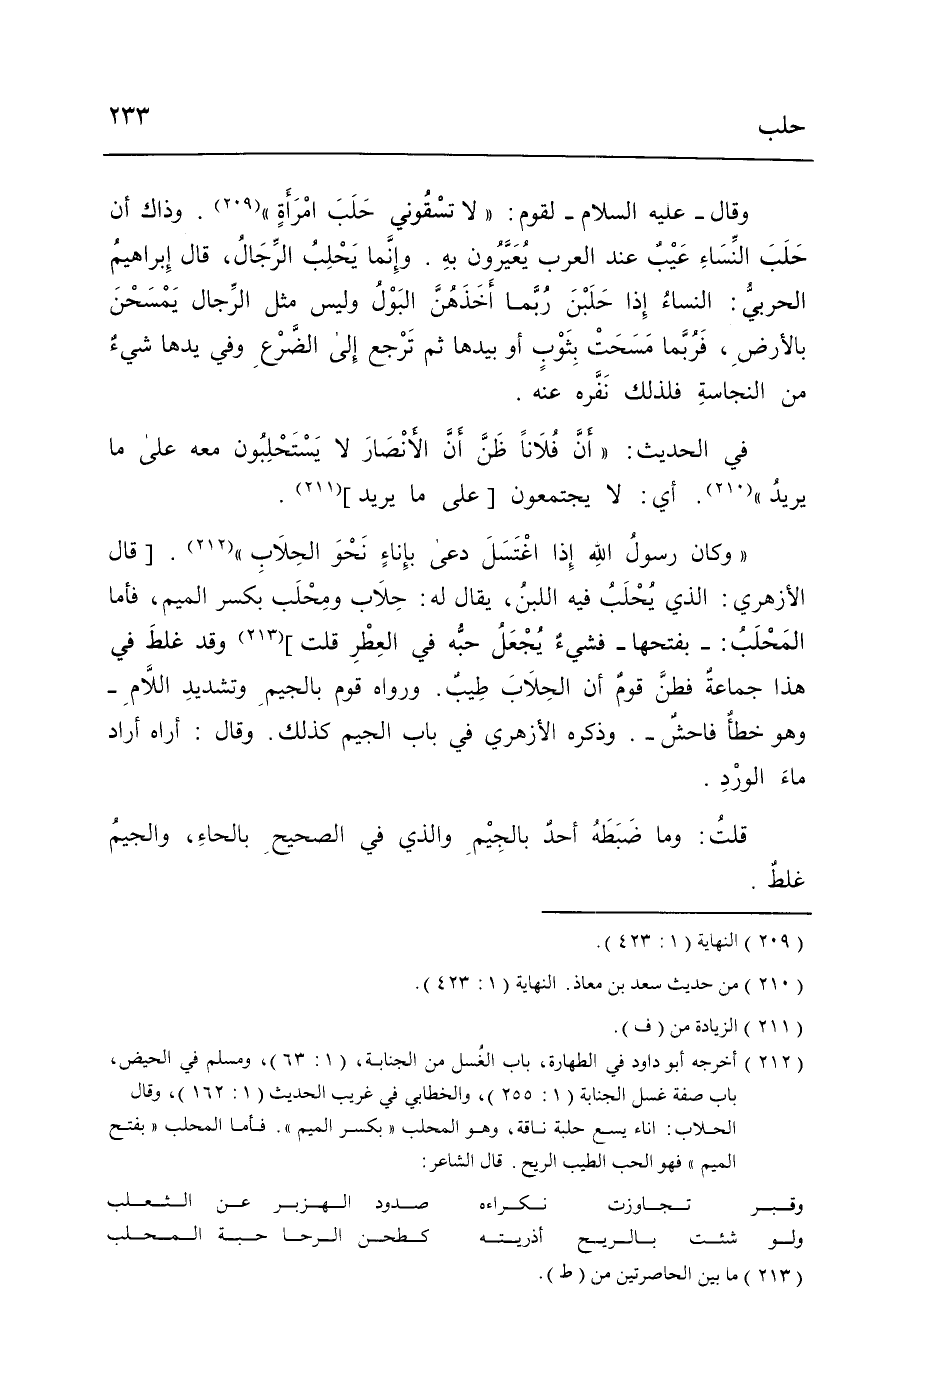 ٢٣٣
حلب
وقال ـ عليه السلام ـ لقوم : « لا تسْقُوني حَلَبَ امْرَأَةٍ »(٢٠٩) . وذاك أن
حَلَبَ النِّسَاءِ عَيْبٌ عند العرب يُعَيَّرُون بهِ . وإنَّما يَحْلِبُ الرِّجَالُ ، قال إبراهيمُ
الحربيُّ : النساءُ إذا حَلَبْنَ رُبَّما أَخَذَهُنَّ البَوْلُ وليس مثل الرِّجال يَمْسَحْنَ
بالأرضِ ، فَرُبَّما مَسَحَتْ بِثَوْبٍ أو بيدها ثم تَرْجع إلىٰ الضَّرْعِ وفي يدها شيءٌ
من النجاسةِ فلذلك نَفَّره عنه .
في الحديث : « أَنَّ فُلَاناً ظَنَّ أَنَّ الأَنْصَارَ لا يَسْتَحْلِبُون معه علىٰ ما
يريدُ »(٢١٠). أي : لا يجتمعون [ على ما يريد ](٢١١) .
« وكان رسولُ الله إذا اغْتَسَلَ دعىٰ بإناءٍ نَحْوَ الحِلَابِ »(٢١٢) . [ قال
الأزهري : الذي يُحْلَبُ فيه اللبنُ ، يقال له : حِلَاب ومِحْلَب بكسر الميم ، فأما
المَحْلَبُ : ـ بفتحها ـ فشيءٌ يُجْعَلُ حبُّه في العِطْرِ قلت ](٢١٣) وقد غلطَ في
هذا جماعةٌ فظنَّ قومٌ أن الحِلابَ طِيبٌ . ورواه قوم بالجيمِ وتشديدِ اللَّامِ ـ
وهو خطأٌ فاحشٌ ـ . وذكره الأزهري في باب الجيم كذلك . وقال : أراه أراد
ماءَ الورْدِ .
قلتُ : وما ضَبَطَهُ أحدٌ بالجِيْمِ والذي في الصحيحِ بالحاءِ ، والجيمُ
غلطٌ .
( ٢٠٩ ) النهاية ( ١ : ٤٢٣ ).
( ٢١٠ ) من حديث سعد بن معاذ . النهاية ( ١ : ٤٢٣ ).
( ٢١١ ) الزيادة من ( ف ).
( ٢١٢ ) أخرجه أبو داود في الطهارة ، باب الغُسل من الجنابة ، ( ١ : ٦٣ ) ، ومسلم في الحيض ،
باب صفة غسل الجنابة ( ١ : ٢٥٥ ) ، والخطابي في غريب الحديث ( ١ : ١٦٢ ) ، وقال
الحلاب : اناء يسع حلبة ناقة ، وهو المحلب « بكسر الميم ». فأما المحلب « بفتح
الميم » فهو الحب الطيب الريح . قال الشاعر :
وقبر تجاوزت نكراءه صدود الهزبر عن الثعلب
ولو شئت بالريح أذريته كطحن الرحا حبة المحلب
( ٢١٣ ) ما بين الحاصرتين من ( ط ).